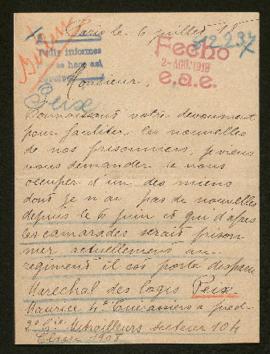 Paris le 6 juillet 18
12.237
Fecho
2-AGO.1918
e.a.e.
Monsieur,
Peix
Connaissant votre dévouement
pour faciliter les nouvelles
de nos prisonniers, je viens
vous demander de vous
occuper d'un des miens
dont je n'ai pas de nouvelles
depuis le 6 juin et qui d'après
les camarades serait prison
nier actuellement au
regiment il est porté disparu
Marechal des logis Peix
Maurice 4e Cuirassiers à pied
2e Cie Mitrailleurs secteur 104
Classe 1908